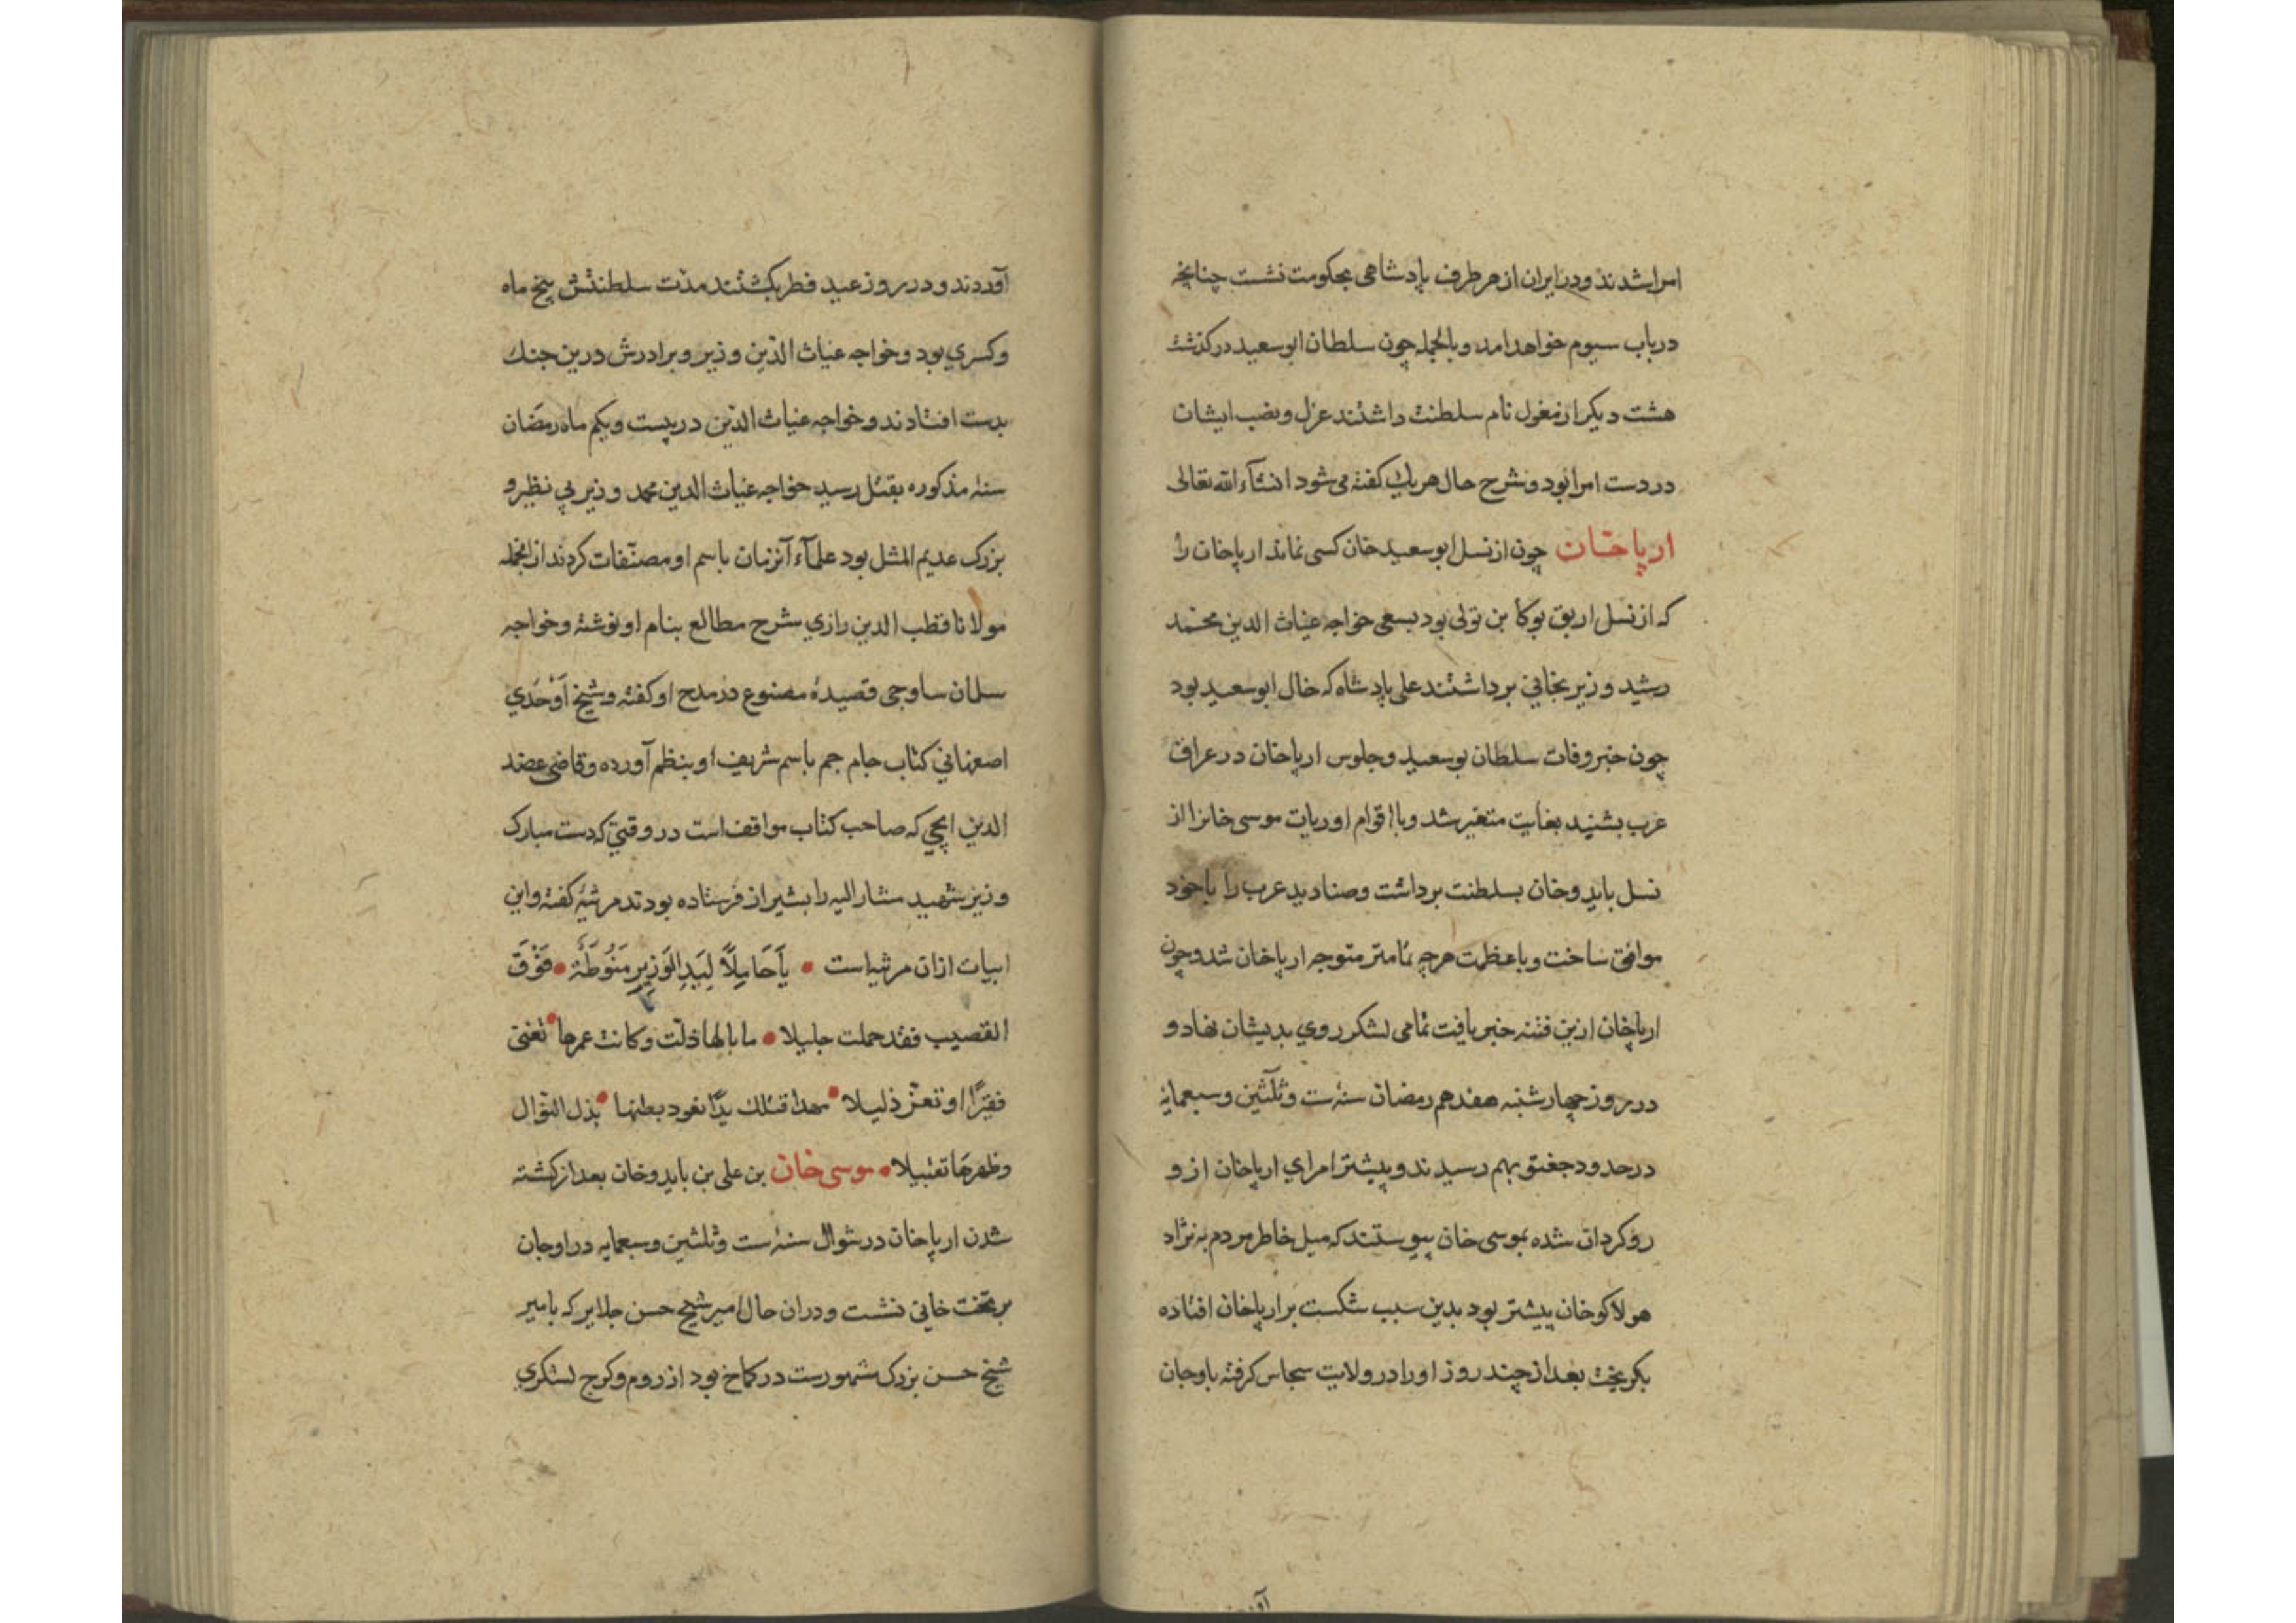 امرا شدند و در ایران از هر طرف پادشاهی بحکومت نشست چنانچه
در باب سیوم خواهد امد و بالجمله چون سلطان ابو سعید در کذشت
هشت دیکر از مغول نام سلطنت داشتند عزل و نصب ایشان
در دست امرا بود و شرح حال هر یك کفته می شود انشآء الله تعالی
ارپاخان چون از نسل ابو سعید خان کسی نماند ارپاخان را
که از نسل اریق بوکا بن تولی بود بسعی خواجه غیاث الدین محمّد
رشید وزیر بخانی برداشتند علی پادشاه که خال ابو سعید بود
چون خبر وفات سلطان بو سعید و جلوس ارپاخان در عراق
عرب بشنید بغایت متغیر شد و با اقوام اویرات موسی خانرا از
نسل بایدو خان بسلطنت برداشت و صنادید عرب را با خود
موافق ساخت و با عظمت هر چه تمامتر متوجه ارپاخان شد و چون
ارپاخان ازین فتنه خبر یافت تمامی لشکر روی بدیشان نهاد و
در روز چهارشنبه هفدهم رمضان سنه ست و ثلثین و سبعمایه
در حدود جغتو بهم رسیدند و پیشتر امرای ارپاخان از و
رو کردان شده بموسی خان پیوستند که میل خاطر مردم به نژاد
هولاکو خان بیشتر بود بدین سبب شکست بر ارپاخان افتاده
بکریخت بعد از چند روز او را در ولایت سجاس کرفته باوجان
آوردند و در روز عید فطر بکشتند مدّت سلطنتش پنج ماه
و کسری بود و خواجه غیاث الدّین وزیر و برادرش درین جنك
بدست افتادند و خواجه غیاث الدّین در بیست و یکم ماه رمضان
سنه مذکوره بقتل رسید خواجه غیاث الدین محمد وزیر بی نظیر و
بزرک عدیم المثل بود علمآء آنزمان باسم او مصنّفات کردند از انجمله
مولانا قطب الدین رازی شرح مطالع بنام او نوشته و خواجه
سلمان ساوجی قصیدهٔ مصنوع در مدح او کفته و شیخ اَوْحَدی
اصفهانی کتاب جام جم باسم شریف او بنظم آورده و قاضی عضد
الدین ایجی که صاحب کتاب مواقف است در وقتی که دست مبارک
وزیر شهید مشار الیه را بشیراز فرستاده بودند مرثیهٔ کفته و این
ابیات ازان مرثیه است • یَاَ حَامِلًا لِیَدِ الوَزِیِرِ مَنُوطَةً • فَوْقَ
القصیب فقد حملت جلیلا • ما بالها ذلّت و کانت عمرها • تغنی
فقیرًا او تعزّ ذلیلا • بدًا تعود بطنها • بذل النوال
و ظهرهَا تقبیلا • موسی خان بن علی بن بایدو خان بعد از کشته
شدن ارپاخان در شوال سنه ست و ثلثین و سبعمایه در اوجان
بر تخت خانی نشست و دران حال امیر شیخ حسن جلایر که بامیر
شیخ حسن بزرک مشهورست در کماخ بود از روم و کرج لشکری